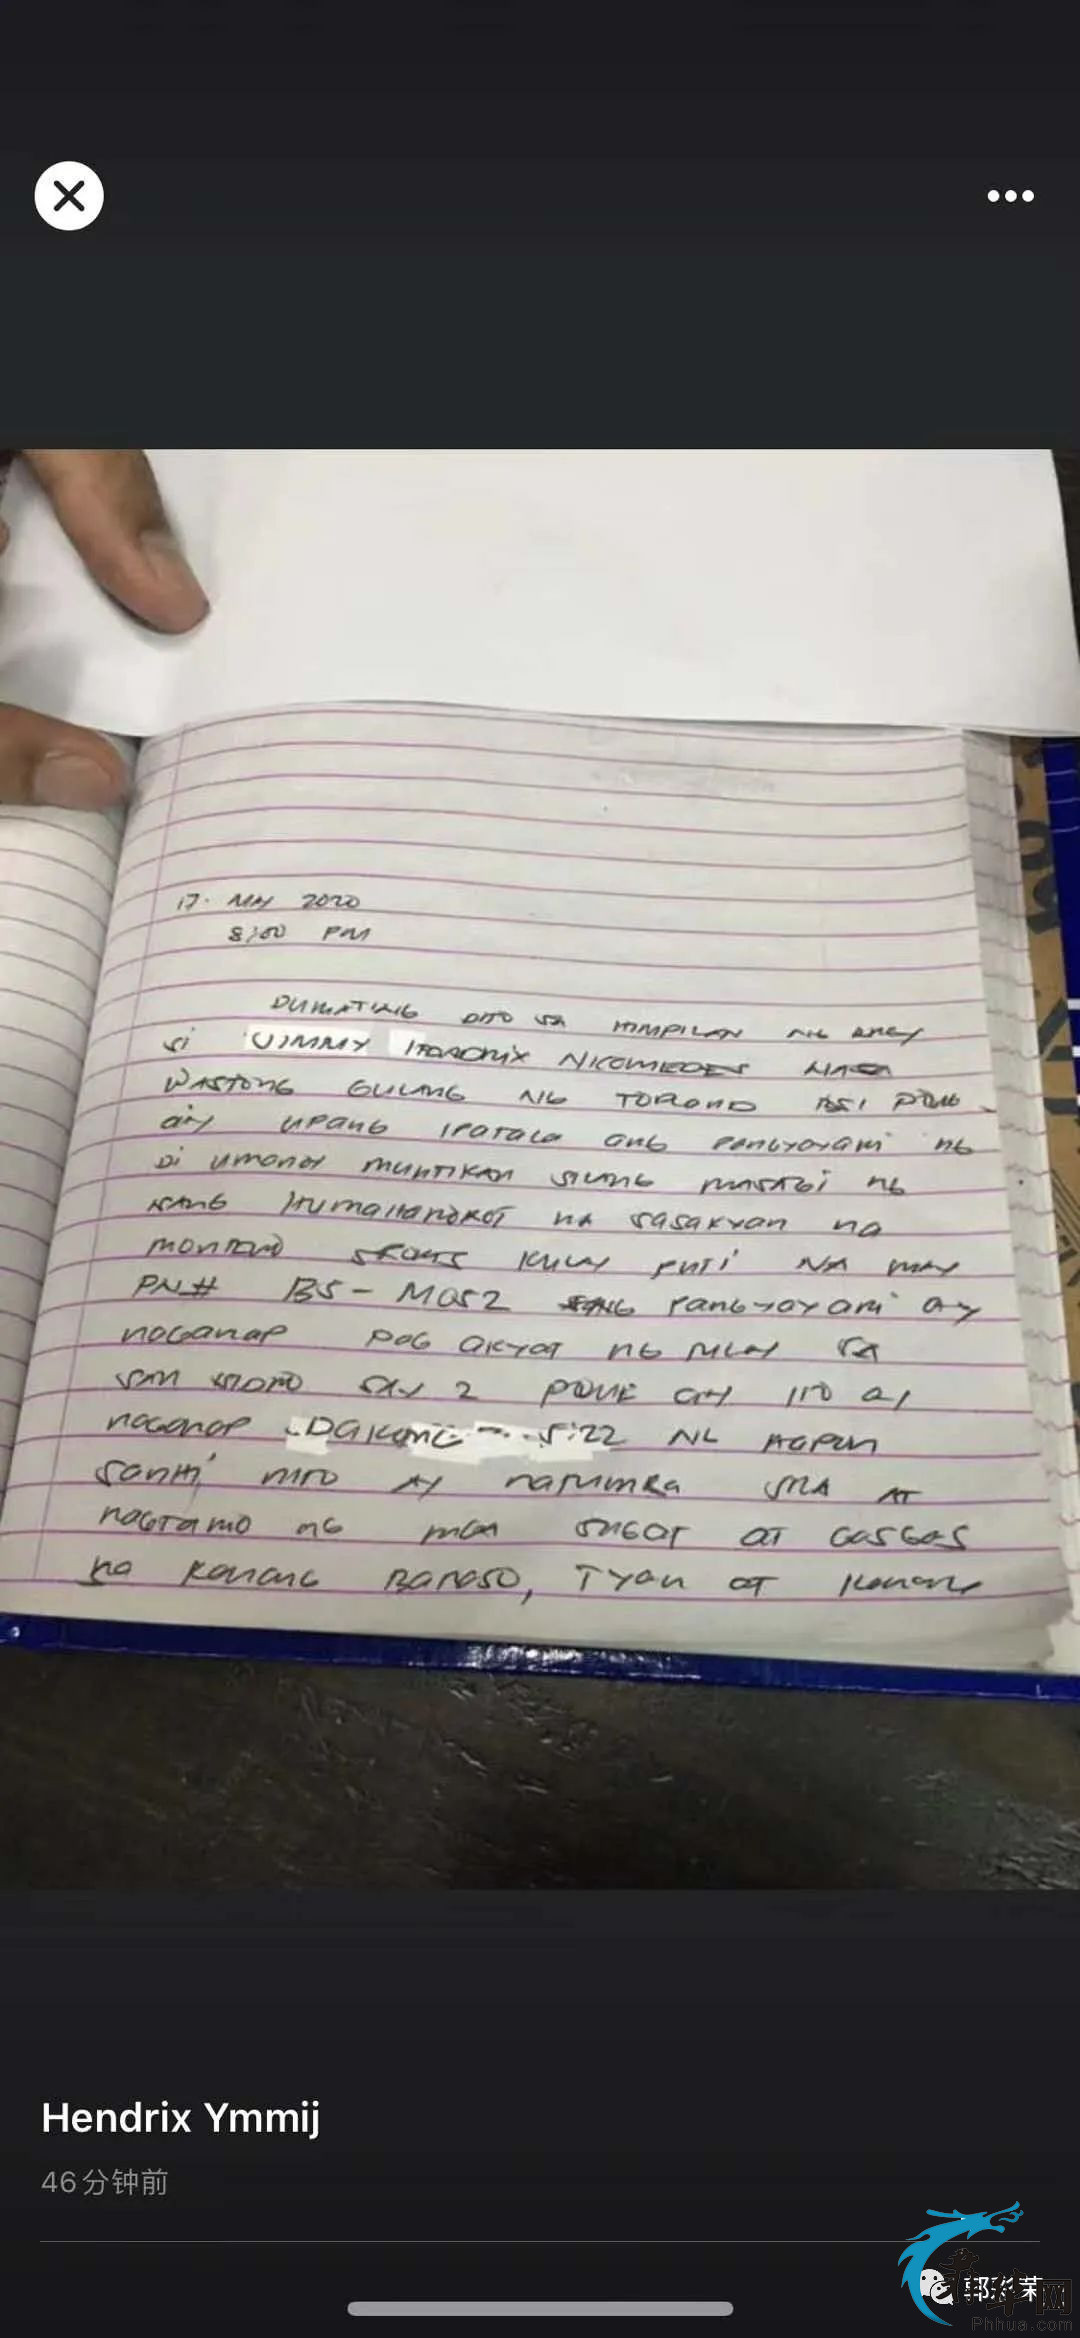 17. MAY 2020
8:00 PM
DUMATING DITO SA HIMPILAN NG BRGY
si JIMMY HENDRIX NICOMEDES NASA
WASTONG GULANG NG
ay UPANG IPATALA ANG PANGYAYARI NG
DI UMANOY MUNTIKAN SILANG MASAGI NG
ISANG HUMAHARUROT NA SASAKYAN NA
MONTERO SPORTS KULAY PUTI NA MAY
PN# B5-M052 ANG PANGYAYARI AY
NAGANAP PAG AKYAT NG SA
SAN ISIDRO 2 ITO AY
NAGANAP DAKONG 5:22 NG HAPON
SANHI NITO AY NATUMBA SILA AT
NAGTAMO NG MGA SUGAT AT GASGAS
NA KANANG BARASO, TYAN AT KANANG
Hendrix Ymmij
46分钟前
菲华网
Phhua.com